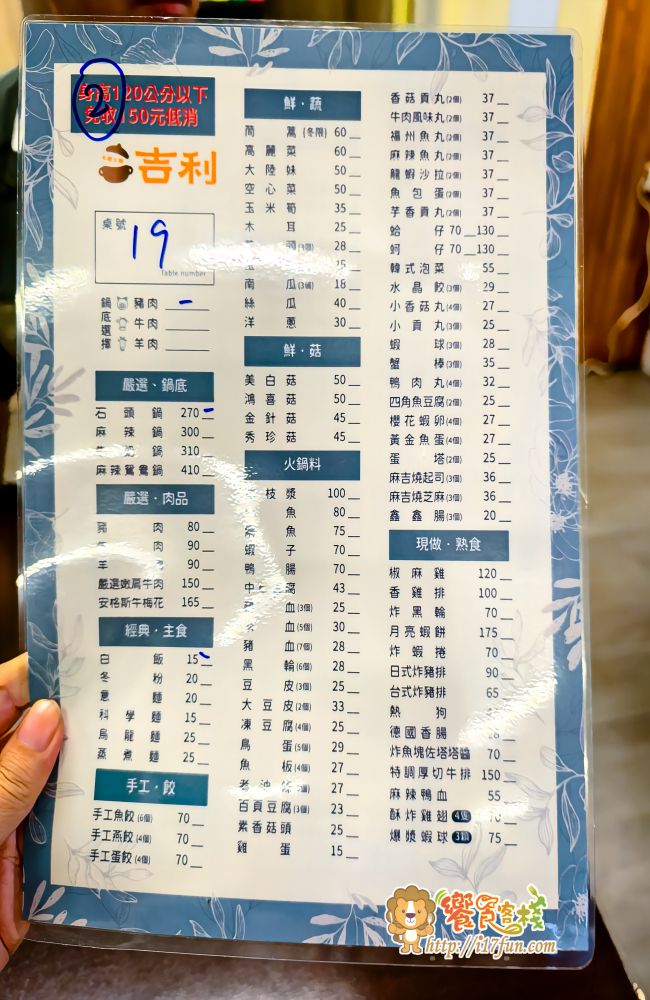 身高120公分以下
免收150元低消
2
吉利
桌號
19
Table number
鍋底選擇
豬肉
牛肉
羊肉
嚴選、鍋底
石頭鍋 270
麻辣鍋 300
310
麻辣鴛鴦鍋 410
嚴選・肉品
豬肉 80
肉 90
羊肉 90
嚴選嫩肩牛肉 150
安格斯牛梅花 165
經典・主食
白飯 15
冬粉 20
意麵 20
科學麵 15
烏龍麵 25
蒸煮麵 25
手工・餃
手工魚餃(6個) 70
手工燕餃(4個) 70
手工蛋餃(4個) 70
鮮・蔬
茼蒿(冬限) 60
高麗菜 60
大陸妹 50
空心菜 50
玉米筍 35
木耳 25
頭(3個) 28
25
南瓜(3個) 18
絲瓜 40
洋蔥 30
鮮・菇
美白菇 50
鴻喜菇 50
金針菇 45
秀珍菇 45
火鍋料
枝漿 100
魚 80
魚 75
蝦子 70
鴨腸 70
中 腐 43
血(3個) 25
血(5個) 30
豬血(7個) 28
黑輪(6個) 28
豆皮(3個) 25
大豆皮(2個) 33
凍豆腐(4個) 25
鳥蛋(5個) 29
魚板(4個) 27
老油條 27
百頁豆腐(3個) 23
素香菇頭 25
雞蛋 15
香菇貢丸(2個) 37
牛肉風味丸(2個) 37
福州魚丸(2個) 37
麻辣魚丸(2個) 37
龍蝦沙拉(2個) 37
魚包蛋(2個) 37
芋香貢丸(2個) 37
蛤仔 70 130
蚵仔 70 130
韓式泡菜 55
水晶餃(3個) 29
小香菇丸(4個) 27
小貢丸(3個) 25
蝦球(3個) 28
蟹棒(3個) 35
鴨肉丸(4個) 32
四角魚豆腐(2個) 25
櫻花蝦卵(4個) 27
黃金魚蛋(4個) 27
蛋塔(2個) 25
麻吉燒起司(3個) 36
麻吉燒芝麻(3個) 36
鑫鑫腸(3個) 20
現做・熟食
椒麻雞 120
香雞排 100
炸黑輪 70
月亮蝦餅 175
炸蝦捲 70
日式炸豬排 90
台式炸豬排 65
熱狗
德國香腸 28
炸魚塊佐塔塔醬 70
特調厚切牛排 150
麻辣鴨血 55
酥炸雞翅 4隻 70
爆漿蝦球 3顆 75
饗食客棧
http://i17fun.com